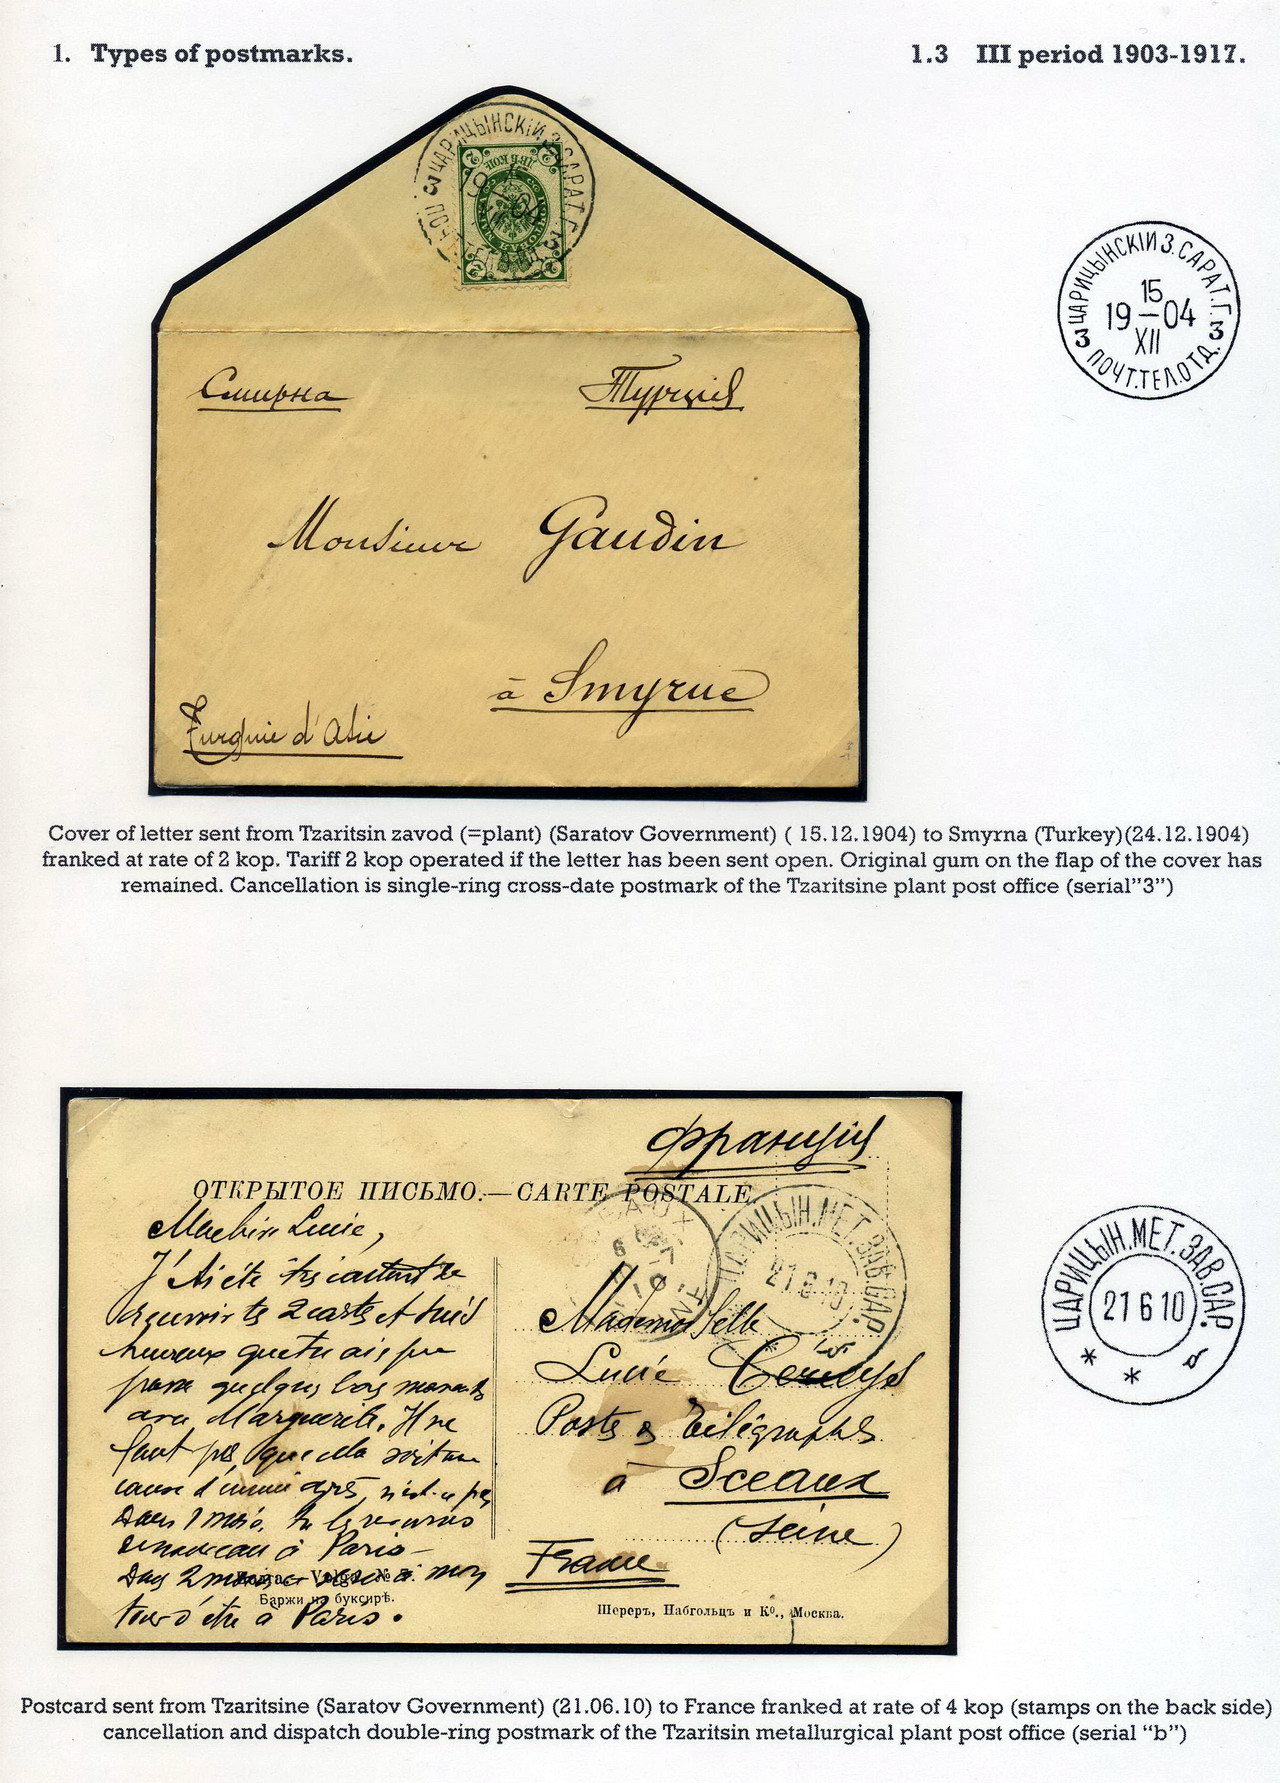 1. Types of postmarks. 1.3 III period 1903-1917.
ЦАРИЦЫНСКІЙ З. САРАТ. Г.
3 3
ПОЧТ. ТЕЛ. ОТД.
ДВѢ КОП.
2 2
2 2
ЦАРИЦЫНСКІЙ З. САРАТ. Г.
15
19—04
XII
3 3
ПОЧТ.ТЕЛ.ОТД.
Смирна Турція
Monsieur Gaudin
à Smyrne
Turquie d'Asie
Cover of letter sent from Tzaritsin zavod (=plant) (Saratov Government) ( 15.12.1904) to Smyrna (Turkey)(24.12.1904)
franked at rate of 2 kop. Tariff 2 kop operated if the letter has been sent open. Original gum on the flap of the cover has
remained. Cancellation is single-ring cross-date postmark of the Tzaritsine plant post office (serial”3”)
Франція
ОТКРЫТОЕ ПИСЬМО.—CARTE POSTALE.
ЦАРИЦЫН. МЕТ. ЗАВ. САР.
21 6 10
Lucie,
J'ai été très
2 cartes et suis
heureux que tu aies pu
passer quelques bons moments
avec Marguerite. Il ne
faut pas que cela
cause d'ennui après, n'est-ce pas
Dans 1 mois, tu
à Paris—
Dans 2 mon
tour d'être à Paris.
Mademoiselle
Lucie
Postes & Télégraphes
à Sceaux
(Seine)
France
Volga № 
Баржи на буксирѣ.
Шереръ, Набгольцъ и Ко., Москва.
ЦАРИЦЫН.МЕТ.ЗАВ.САР.
21 6 10
* * б
Postcard sent from Tzaritsine (Saratov Government) (21.06.10) to France franked at rate of 4 kop (stamps on the back side)
cancellation and dispatch double-ring postmark of the Tzaritsin metallurgical plant post office (serial “b”)